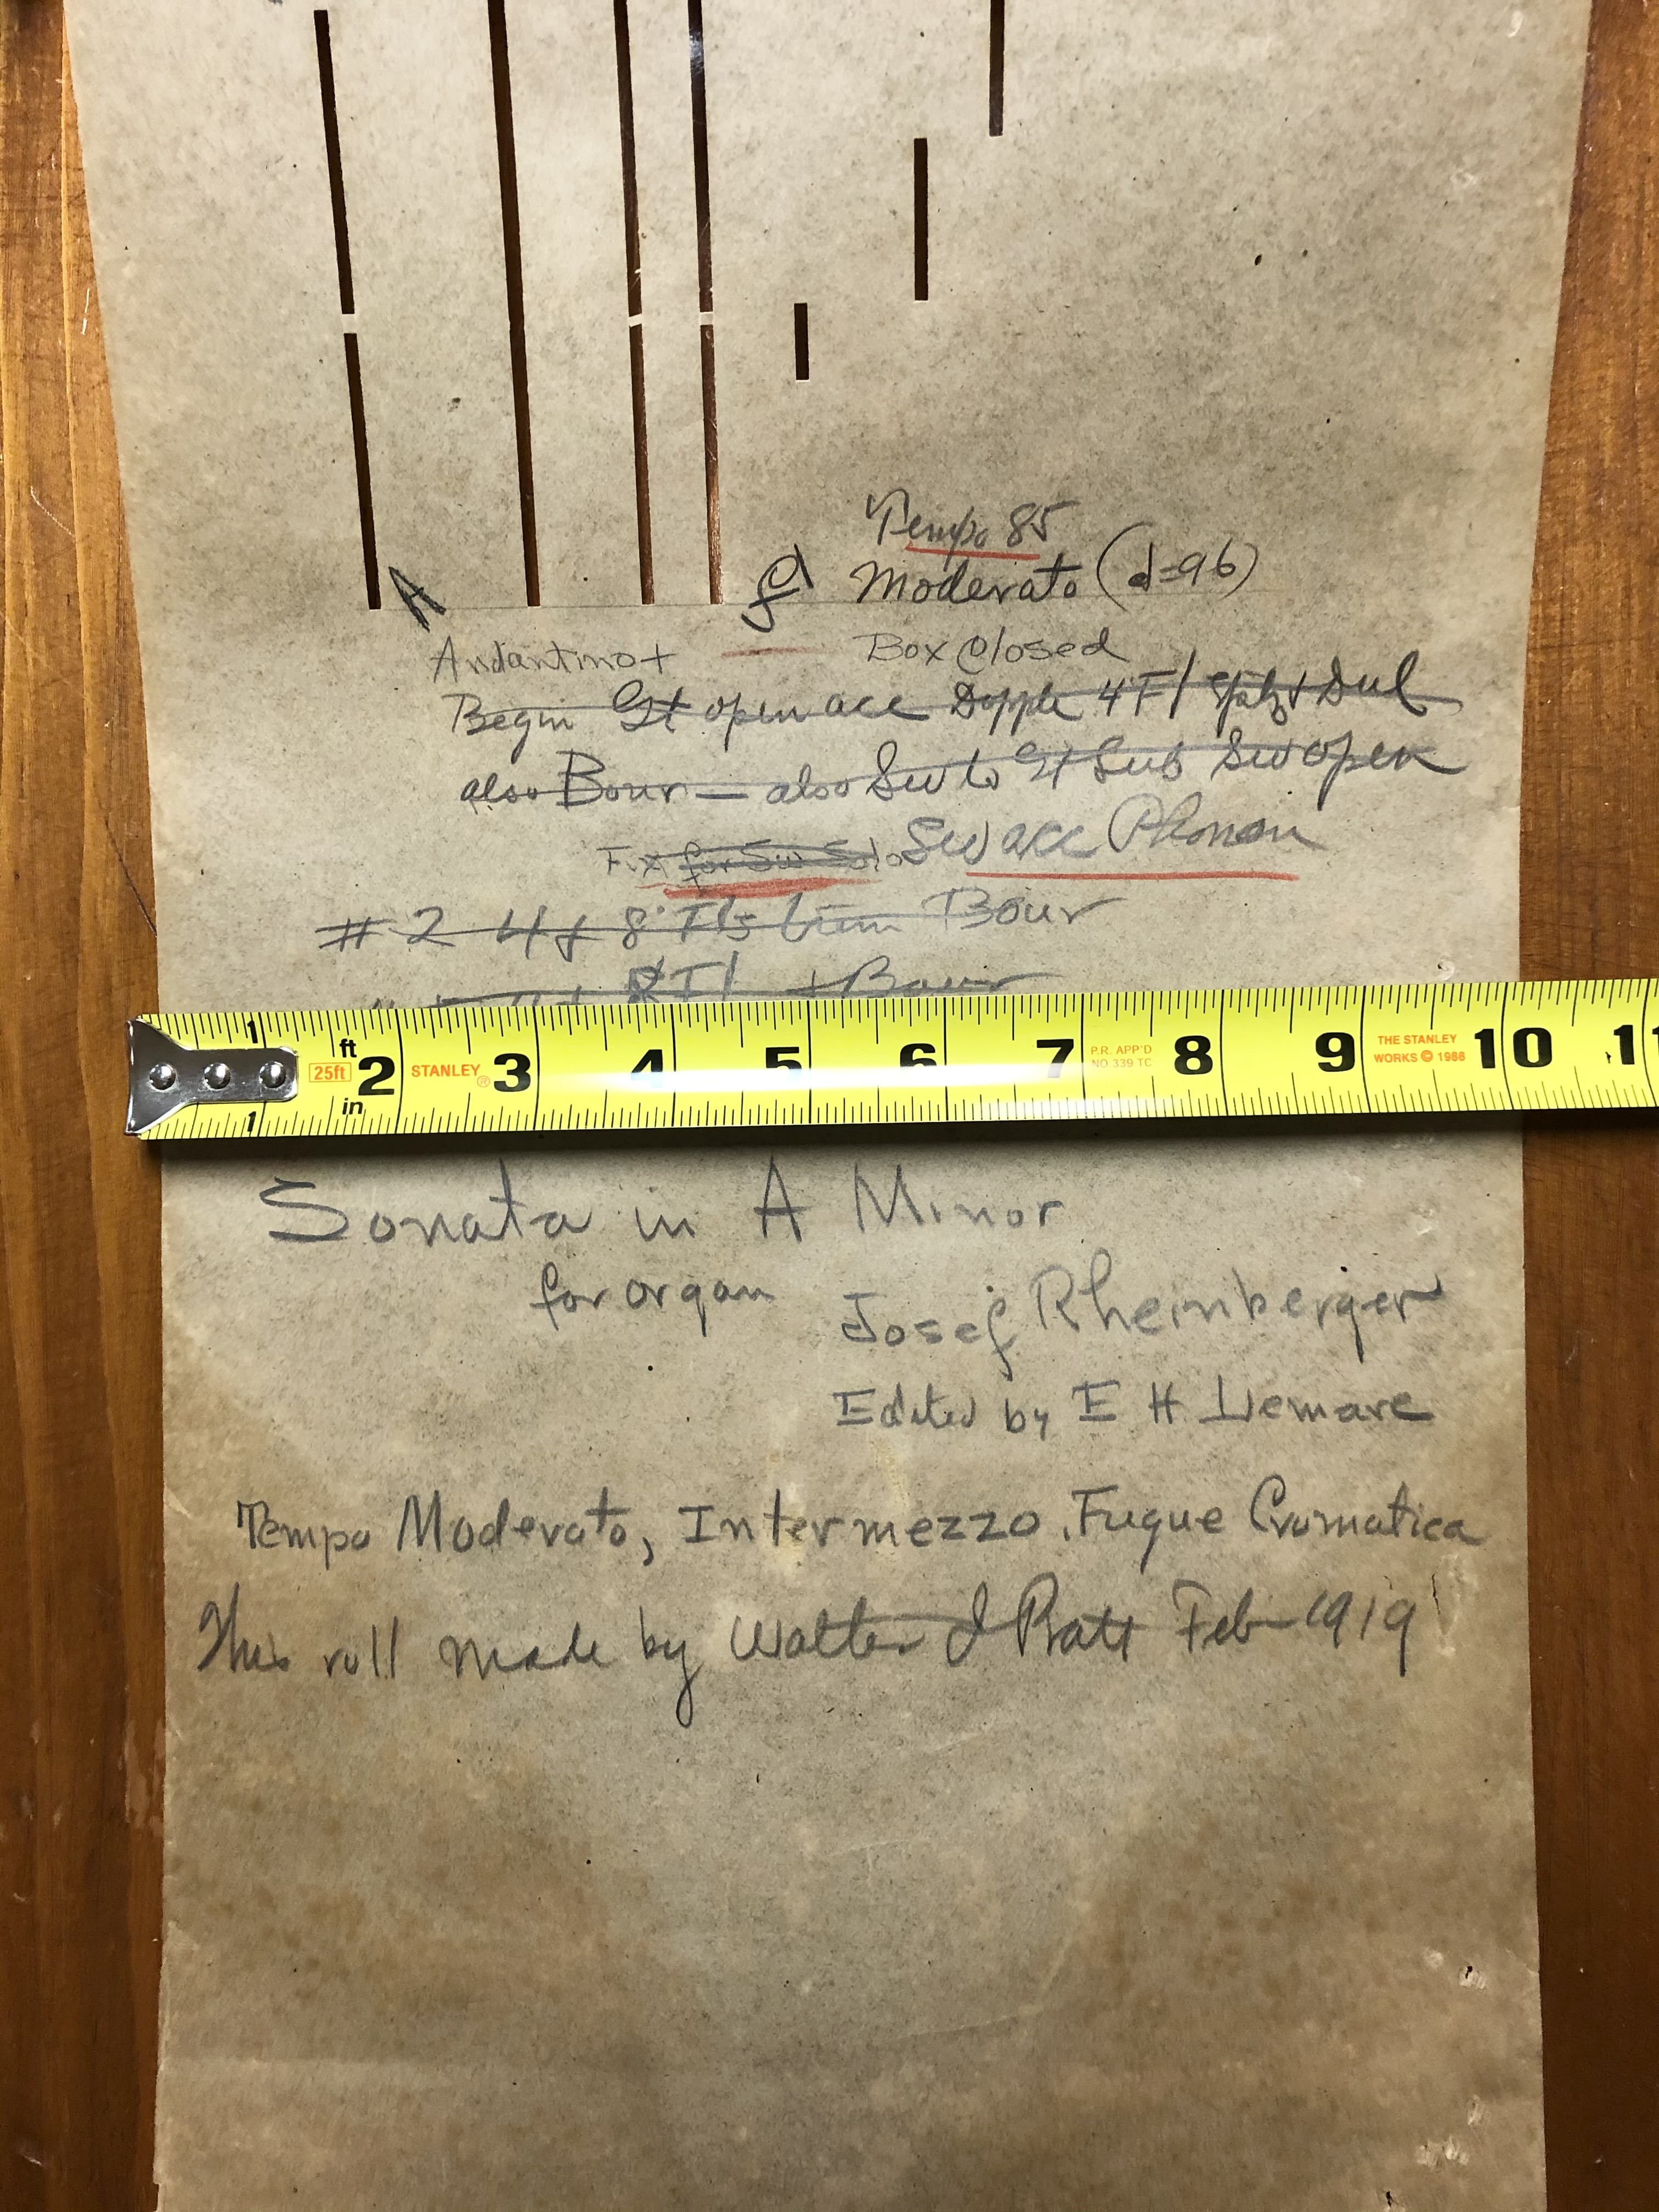 Tempo 85
A
Moderato (d=96)
Andantino+
Box Closed
Begin Gt open acc Dopple 4 Fl & Dul
also Bour — also Sw to Gt Sub Sw open
Fix for Sw Solo Sw acc Phonon
# 2 4 & 8' Fls Bour
8 Fl + Bour
1 ft 2 3 4 5 6 7 8 9 10 11
25ft STANLEY® P.R. APP'D THE STANLEY
NO 339 TC WORKS © 1986
in
1
Sonata in A Minor
for organ
Josef Rheinberger
Edited by E H Lemare
Tempo Moderato, Intermezzo, Fugue Cromatica
This roll made by Walter J Pratt Feb 1919